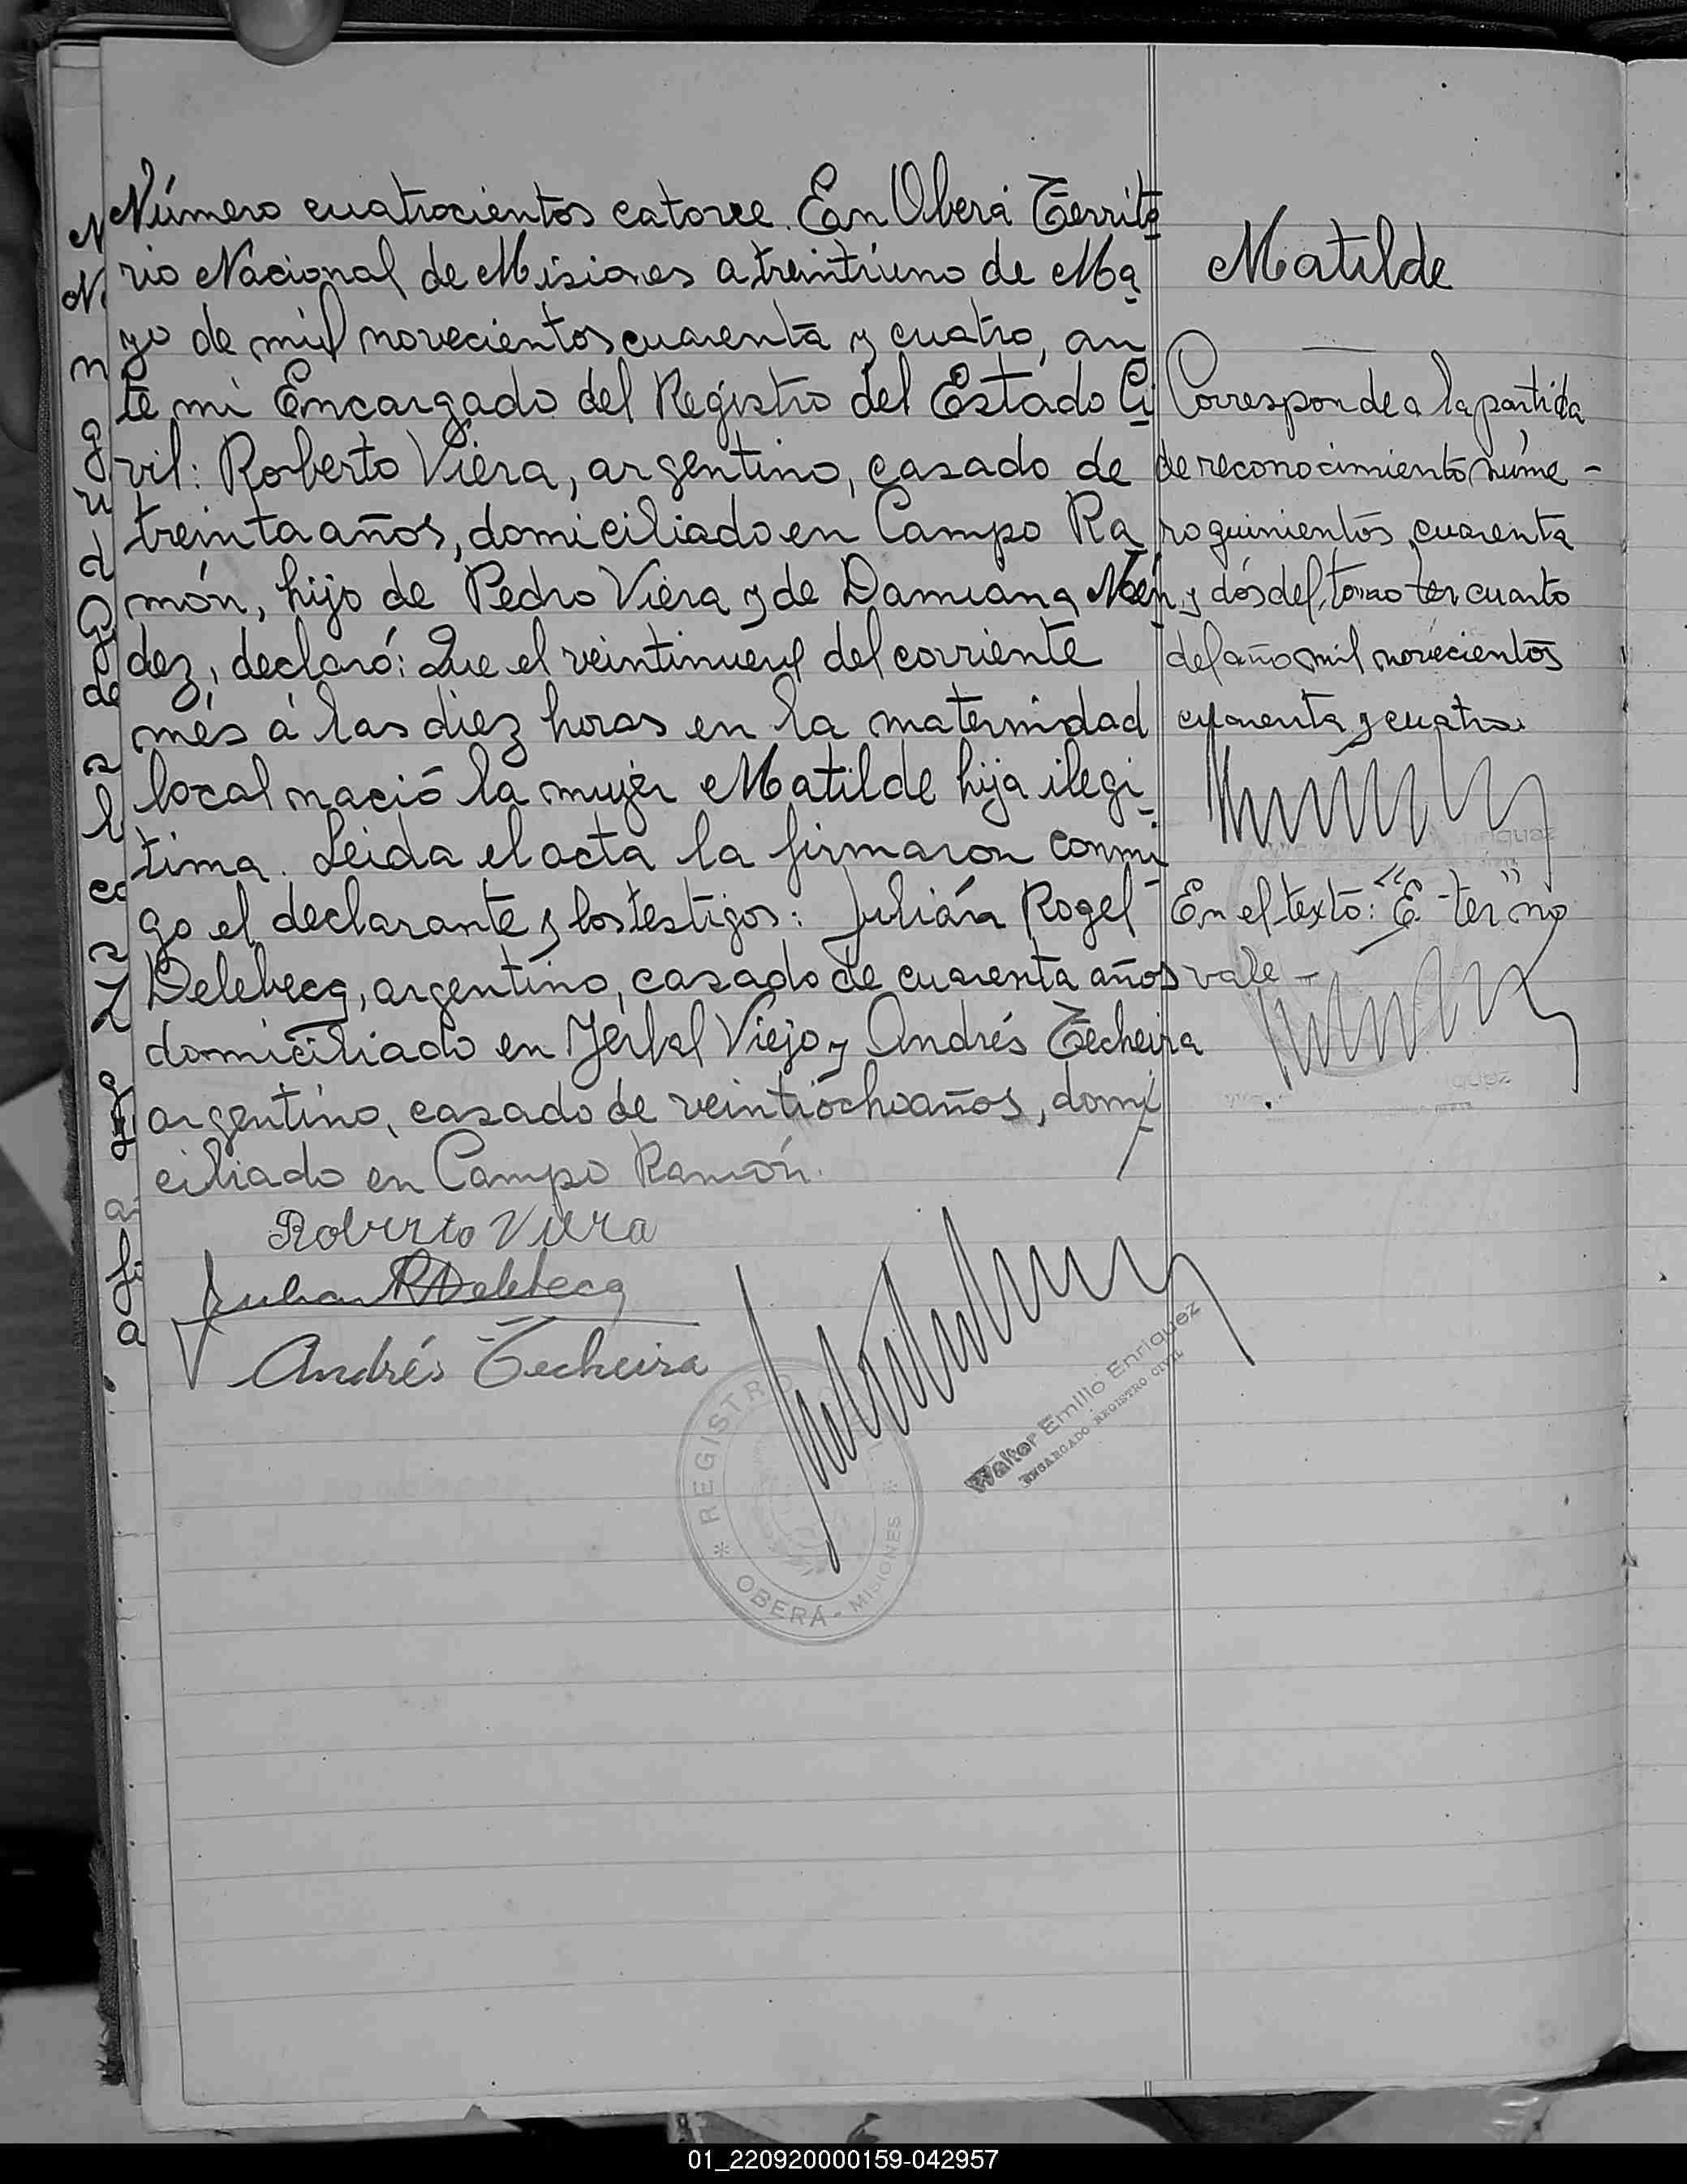 Número cuatrocientos catorce. En Oberá Territo
rio Nacional de Misiones a treintiuno de Ma
yo de mil novecientos cuarenta y cuatro, an
te mi Encargado del Registro del Estado Ci
vil: Roberto Viera, argentino, casado de
treinta años, domiciliado en Campo Ra
món, hijo de Pedro Viera y de Damiana Mén
dez, declaró: Que el veintinueve del corriente
més á las diez horas en la maternidad
local nació la mujer Matilde hija ilegi
tima. Leida el acta la firmaron conmi
go el declarante y los testigos: Julián Rogel
Delebecq, argentino, casado de cuarenta años
domiciliado en Yerbal Viejo y Andrés Techeira
argentino, casado de veintiochoaños, domi
ciliado en Campo Ramón.
Roberto Viera
Julian R Delebecq
Andrés Techeira
REGISTRO
OBERÁ - MISIONES
Walter Emilio Enriquez
ENCARGADO REGISTRO CIVIL
Matilde
Corresponde a la partida
de reconocimiento núme-
ro quinientos cuarenta
y dós del tomo ter cuarto
del año mil novecientos
cuarenta y cuatro
En el texto: "E - ter" no
vale -
01_220920000159-042957